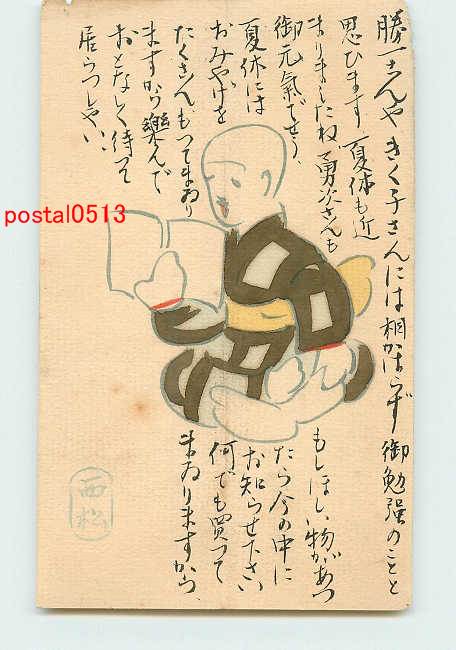 勝一さんやきく子さんには相かはらず御勉強のことと
思ひます 夏休も近
まりましたね 勇次さんも
御元氣でせう、
夏休には
おみやげを
たくさんもつてまゐり
ますから樂んで
おとなしく待つて
居らつしやい、
もしほしい物があつ
たら今の中に
お知らせ下さい
何でも買つて
まゐりますから、
西松
postal0513